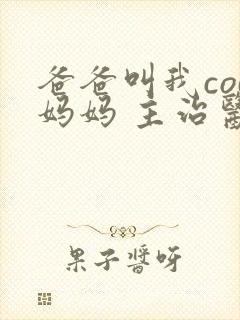 爸爸叫我co
妈妈 主治醫
果子醬呀